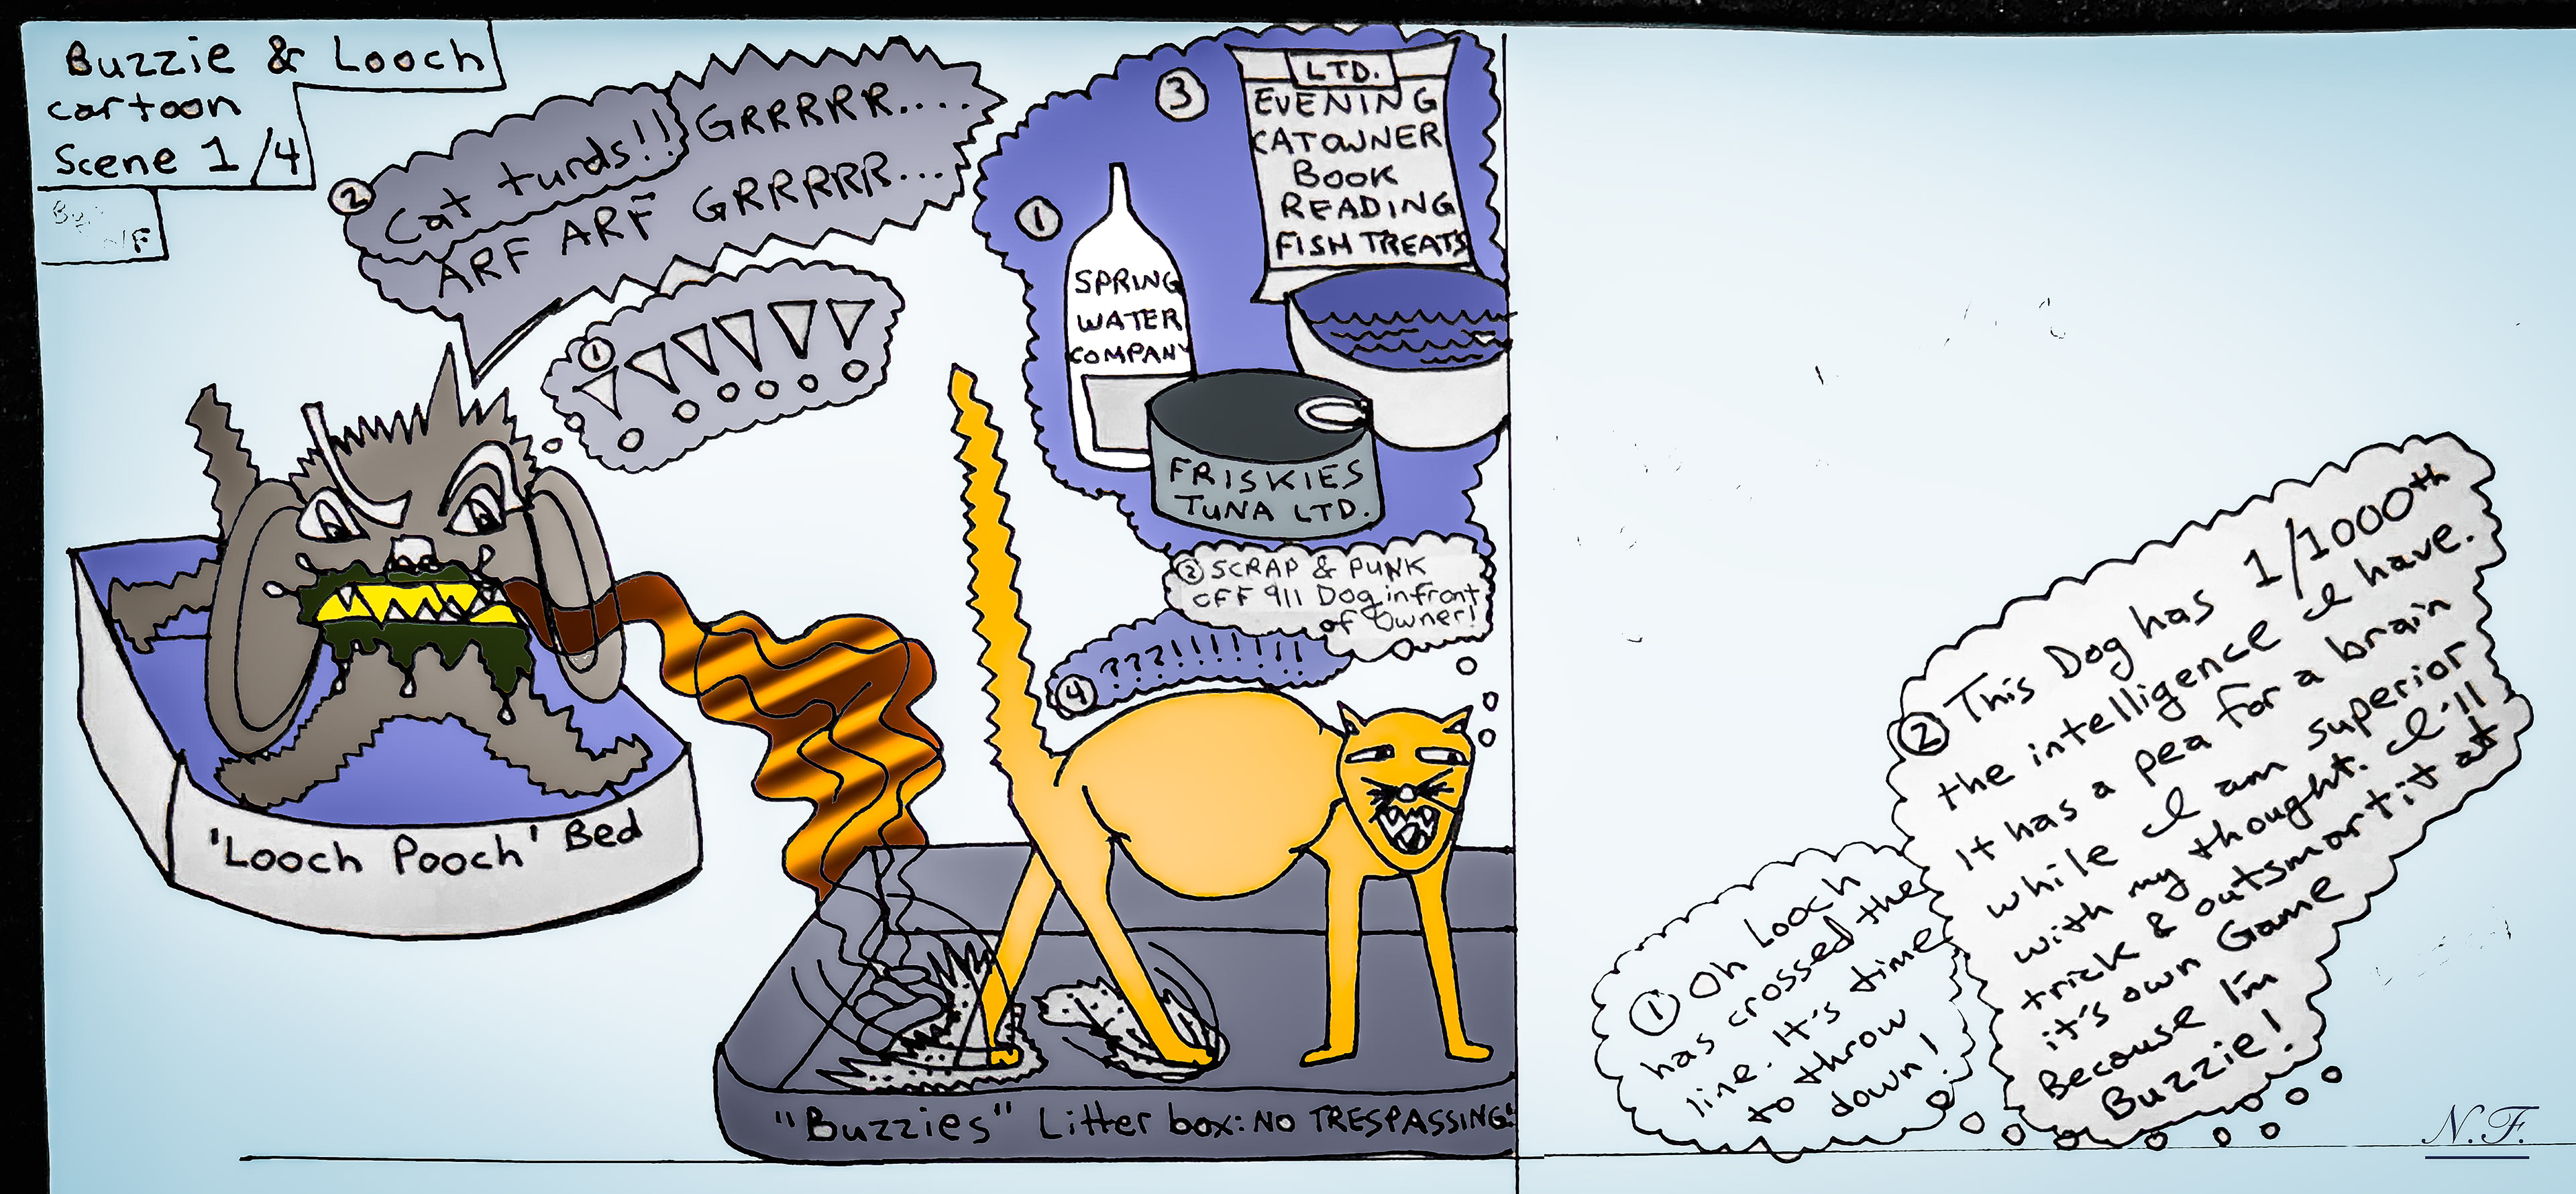 Buzzie & Looch
cartoon
Scene 1/4
② Cat turds!! GRRRRR....
ARF ARF GRRRRR...
① !!!!!!
③
LTD.
EVENING
CATOWNER
BOOK
READING
FISH TREATS
①
SPRING
WATER
COMPANY
FRISKIES
TUNA LTD.
② SCRAP & PUNK
OFF 911 Dog infront
of Owner!
④ ???!!!!!!!
'Looch Pooch' Bed
"Buzzies" Litter box: NO TRESPASSING!
① Oh Looch
has crossed the
line. It's time
to throw
down!
② This Dog has 1/1000th
the intelligence I have.
It has a pea for a brain
while I am superior
with my thought. I'll
trick & outsmart it at
it's own Game
Because I'm
Buzzie!
N.F.